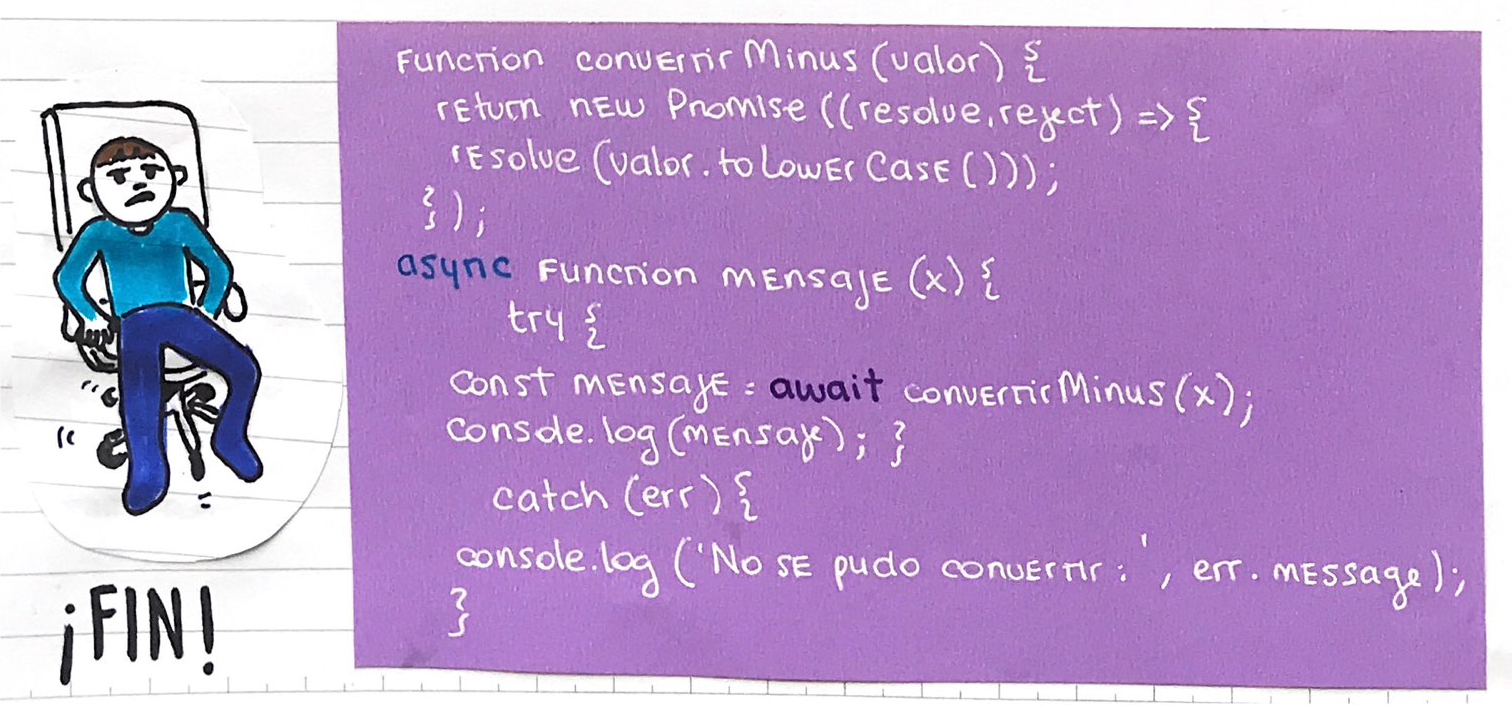 Function convertirMinus (valor) {
return new Promise ((resolve, reject) => {
resolve (valor.toLowerCase()));
});
async Function mensaje (x) {
try {
const mensaje = await convertirMinus (x);
console.log (mensaje); }
catch (err) {
console.log ('No se pudo convertir: ', err.message);
}
¡FIN!